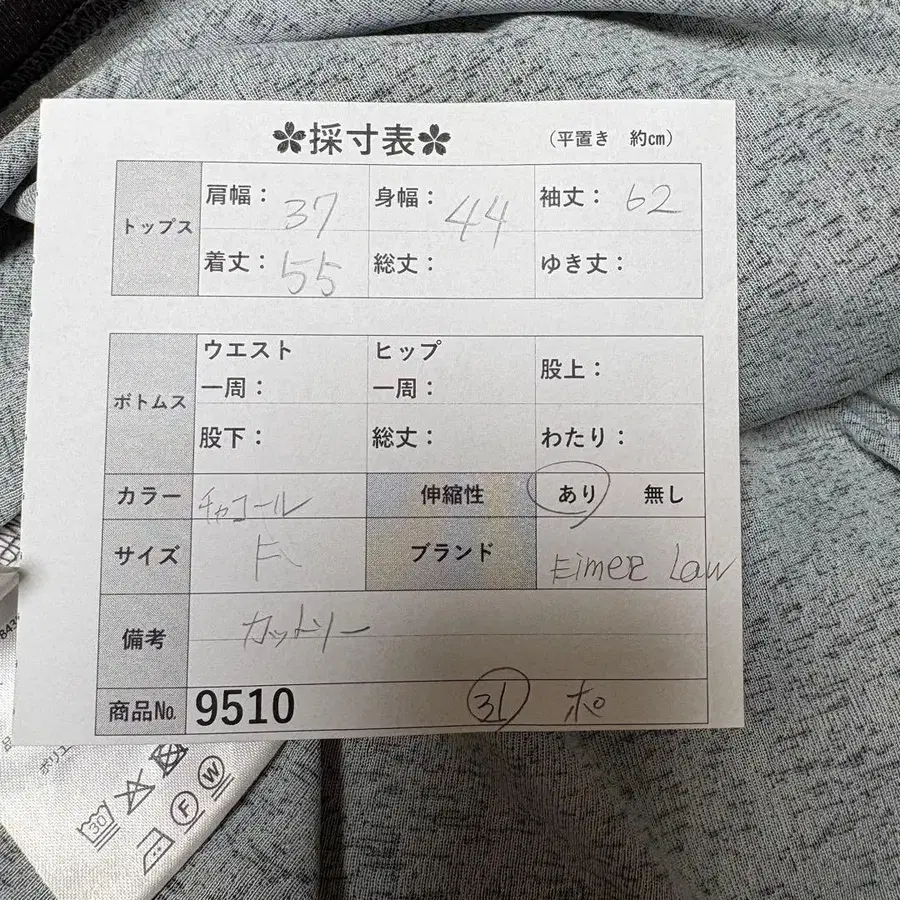 採寸表
(平置き 約㎝)
トップス
肩幅: 37 身幅: 44 袖丈: 62
着丈: 55 総丈: ゆき丈:
ボトムス
ウエスト一周: ヒップ一周: 股上:
股下: 総丈: わたり:
カラー チャコール 伸縮性 あり 無し
サイズ F ブランド Eimee Law
備考 カットソー
商品No. 9510 31 ポ
ポリエ
30
F
W